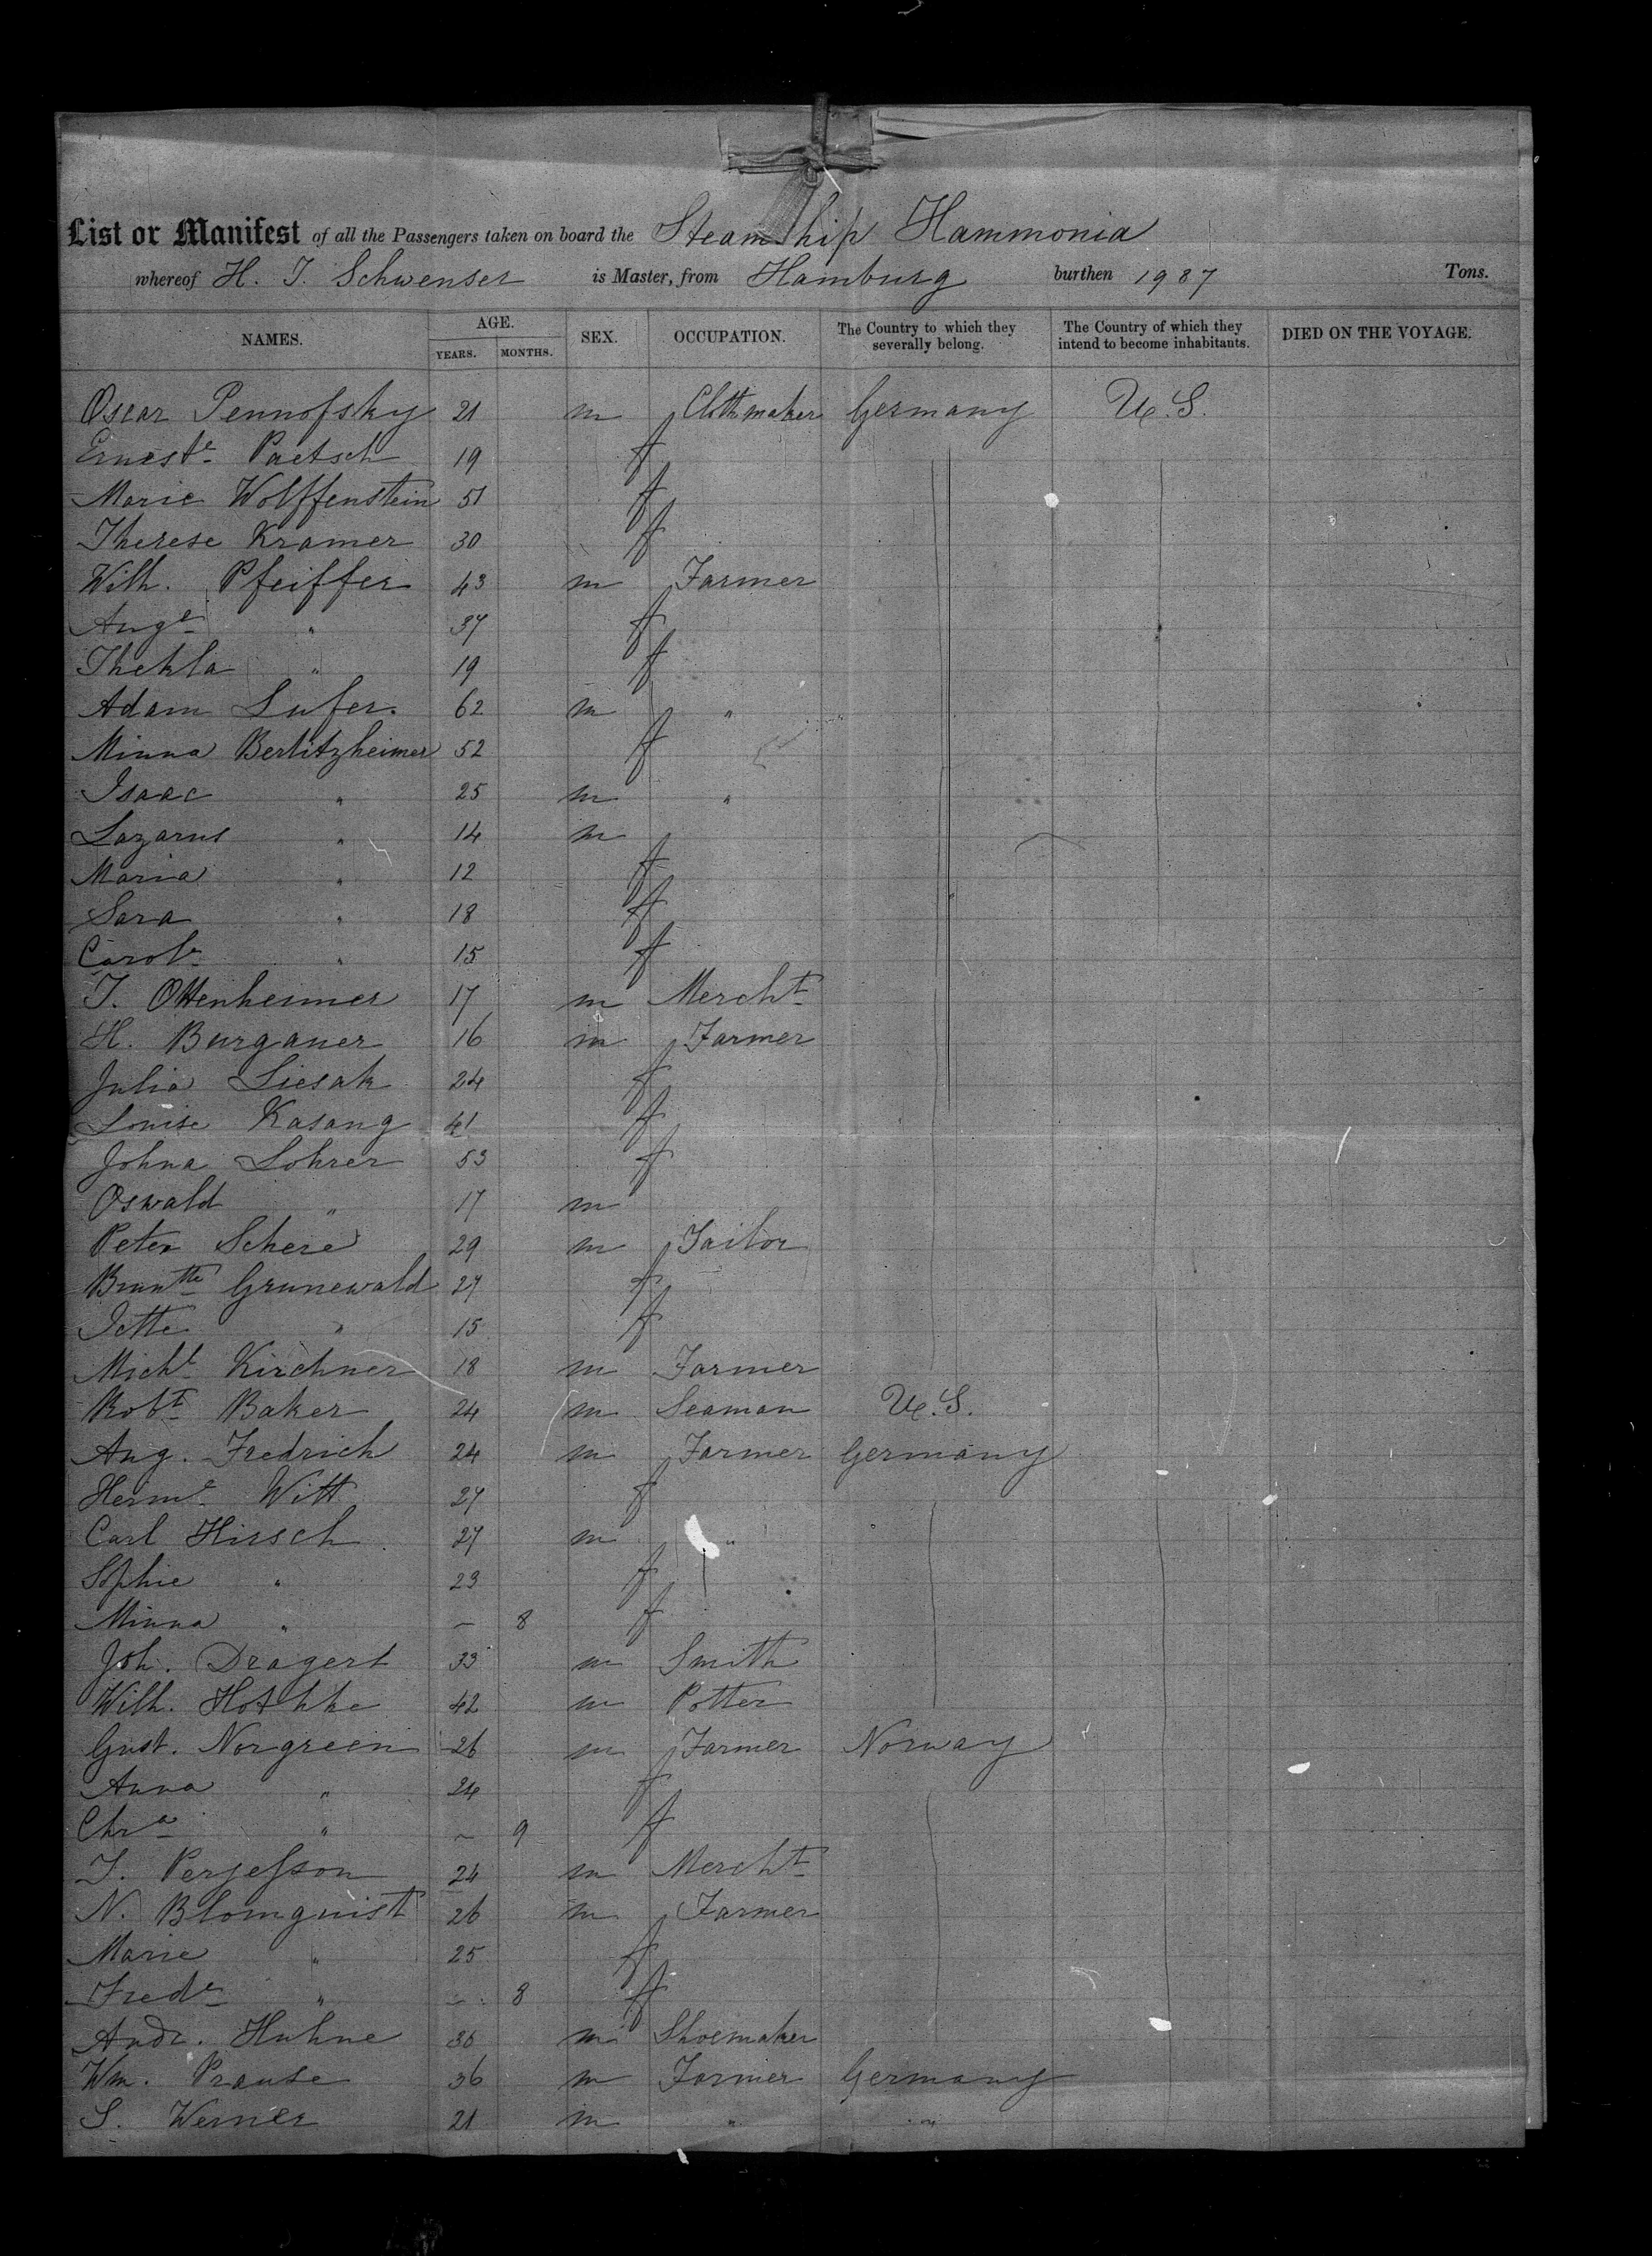 List or Manifest of all the Passengers taken on board the Steam Ship Hammonia
whereof H. J. Schwenser is Master, from Hamburg burthen 1987 Tons.
NAMES. AGE. SEX. OCCUPATION. The Country to which they severally belong. The Country of which they intend to become inhabitants. DIED ON THE VOYAGE.
YEARS. MONTHS.
Oscar Pennofsky 21 m Clothmaker Germany U.S.
Erneste Paetsch 19 f
Marie Wolffenstein 51 f
Therese Kramer 30 f
Wilh. Pfeiffer 43 m Farmer
Auge " 37 f
Thekla " 19 f
Adam Lufer. 62 m "
Minna Berlitzheimer 52 f
Isaac " 25 m "
Lazarus " 14 m
Maria " 12 f
Sara " 18 f
Carole " 15 f
J. Ottenheimer 17 m Mercht
H. Burgauer 16 m Farmer
Julia Liesak 24 f
Louise Kasang 41 f
Johna Lohrer 53 f
Oswald " 17 m
Peter Schere 29 m Tailor
Grunewald 27 f
Jette " 15 f
Michl Kirchner 18 m Farmer
Robt Baker 24 m Seaman U.S.
Aug. Fredrich 24 m Farmer Germany
Herme Witt 27 f
Carl Hirsch 27 m "
Sophie " 23 f
Minna " – 8 f
Joh. Dragert 33 m Smith
Wilh. Hothke 42 m Potter
Gust. Norgreen 26 m Farmer Norway
Anna " 24 f
Chra " – 9 f
J. Perjesson 24 m Mercht
N. Blomquist 26 m Farmer
Marie " 25 f
Frede " – 8 f
Andr. Huhne 36 m Shoemaker
Wm. Prause 36 m Farmer Germany
S. Werner 21 m " "